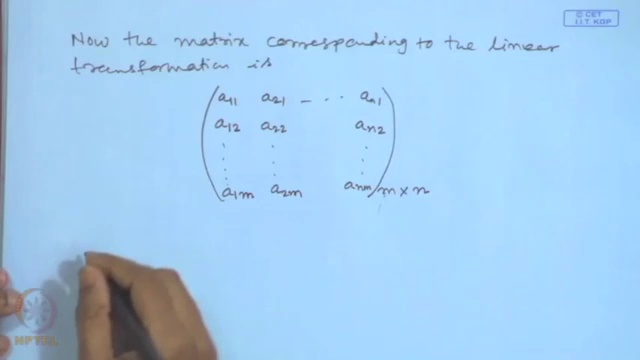 © CET
I.I.T. KGP
Now the matrix corresponding to the linear
transformation is
a11 a21 - . . an1
a12 a22 an2
a1m a2m anm m × n
NPTEL